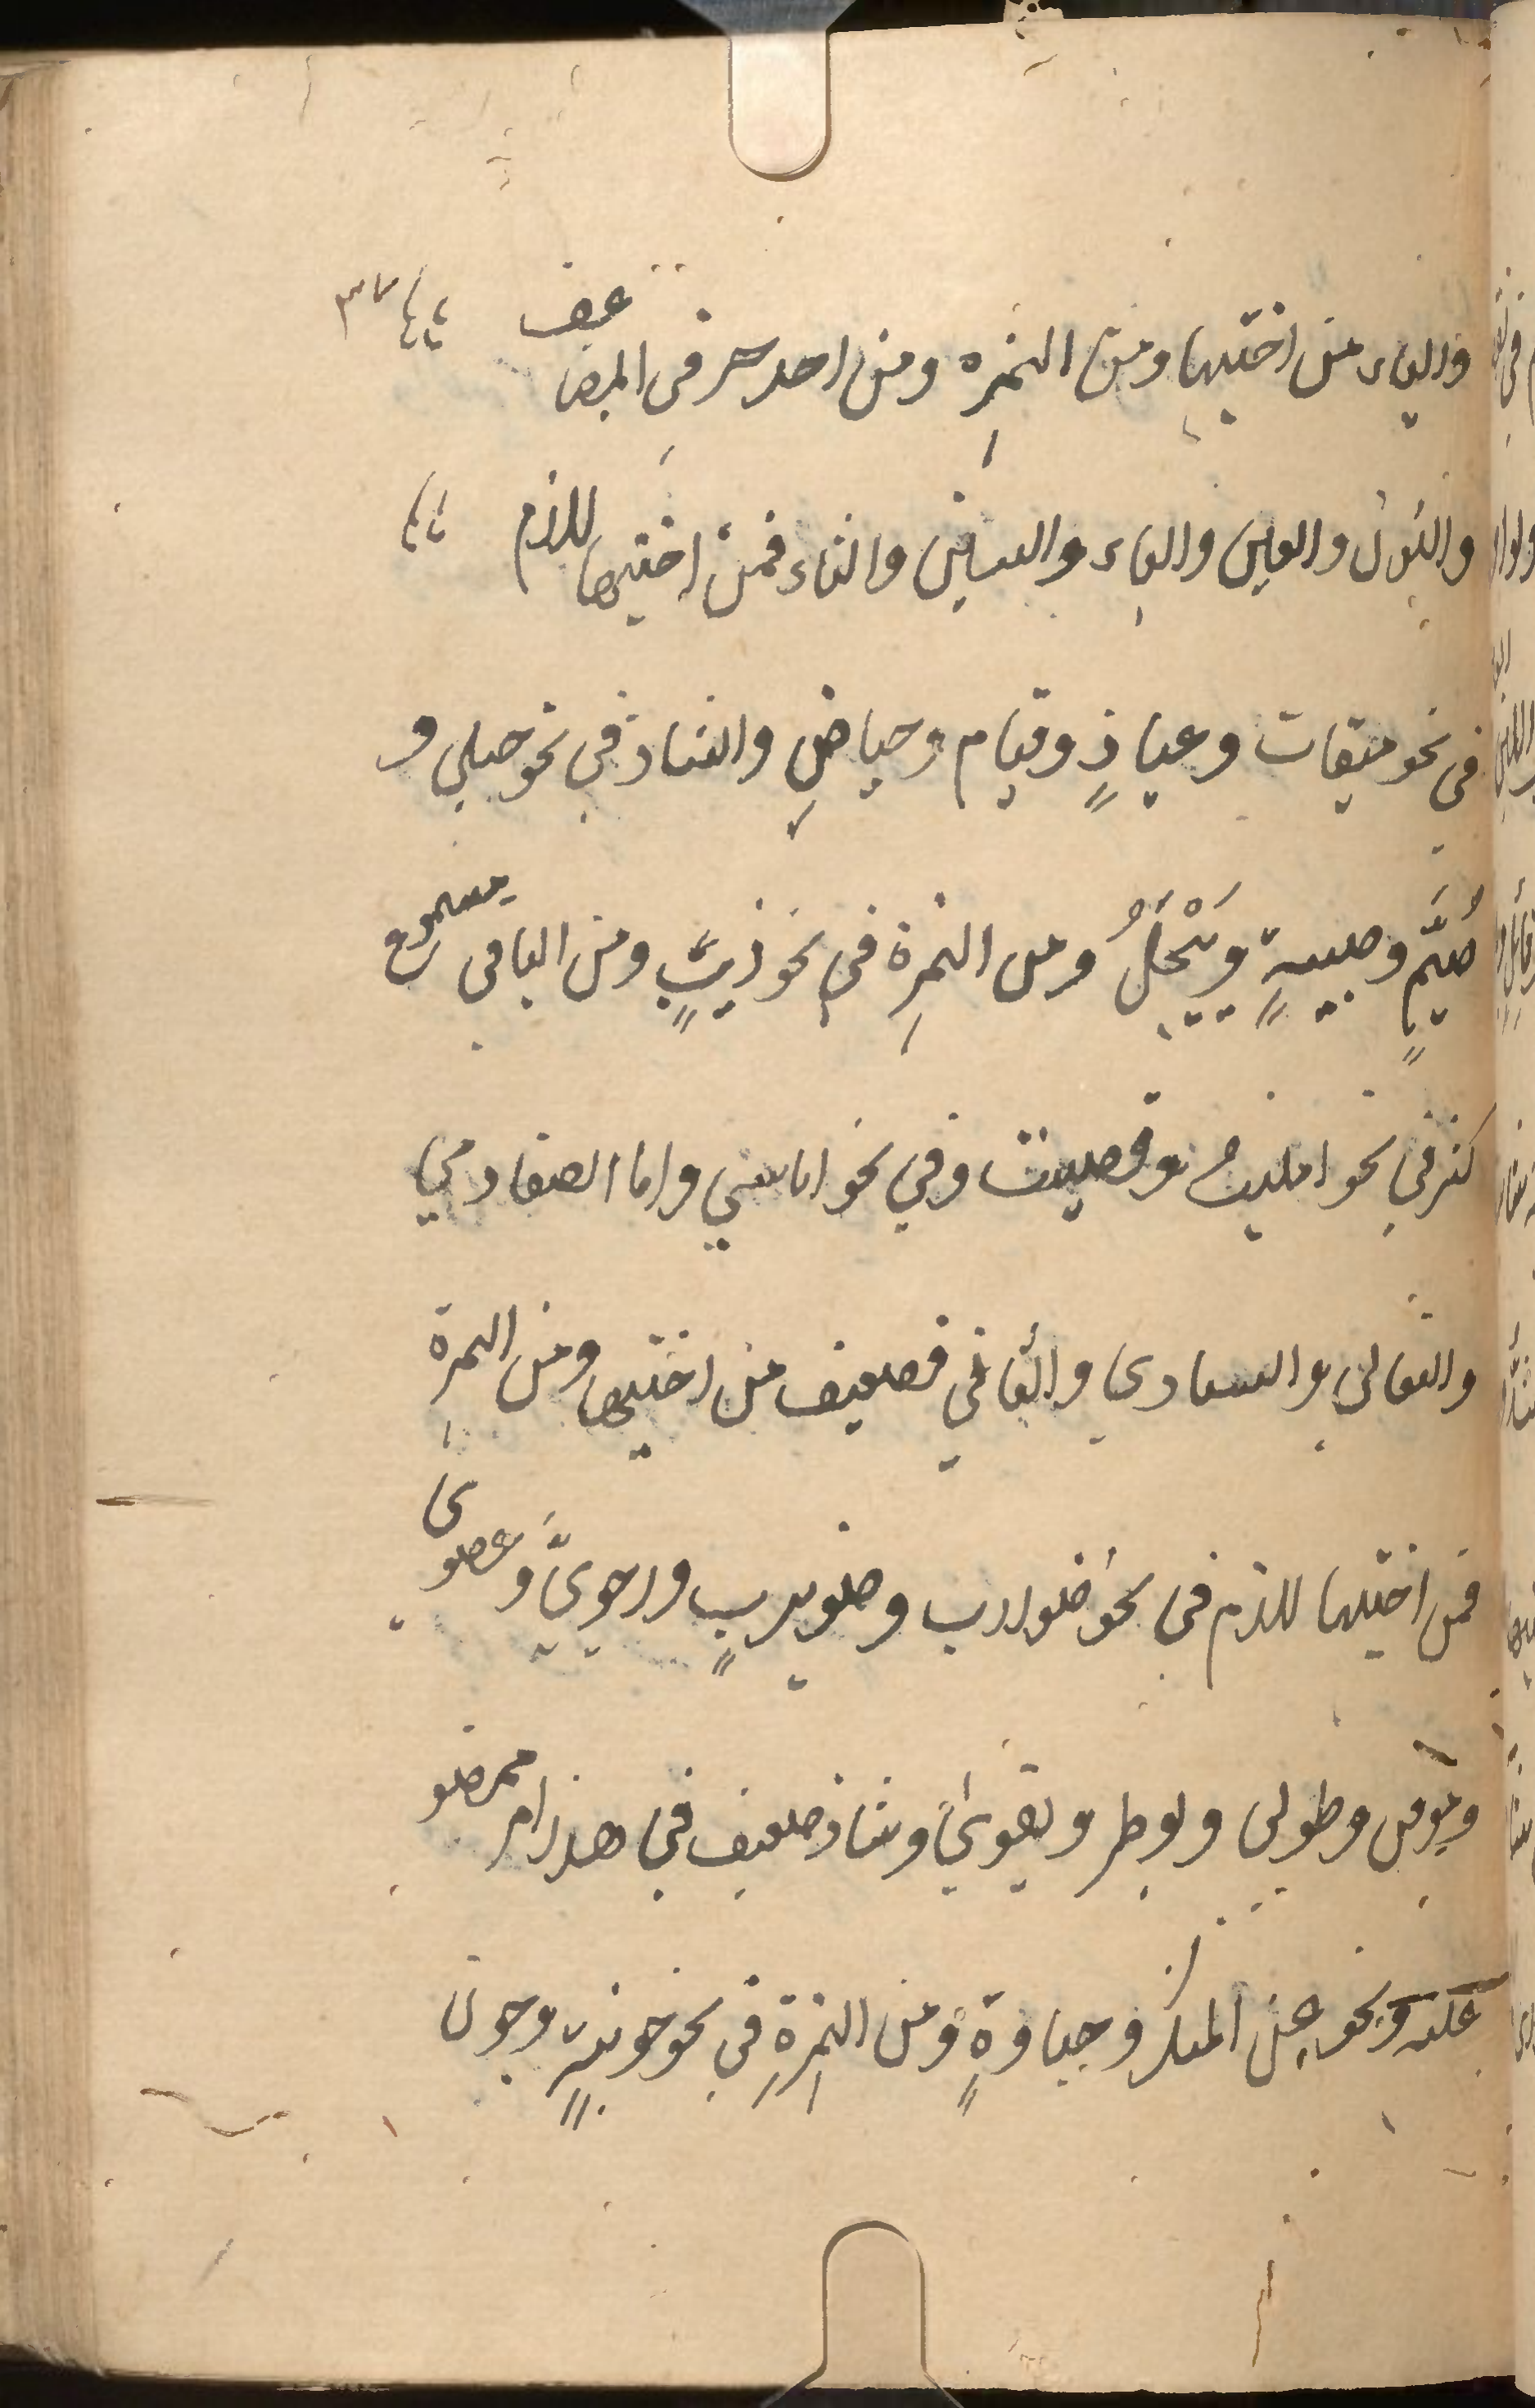 والياء من اختيها ومن الهمزه ومن احد حرفى المضاعف ٣٧
والنون والعين والباء والسين والثاء فمن اختيها للازم
فى نحو ميقات وعياذٍ وقيام وحياضٍ والشاذ في نحو حبلي و
صُيَّمٍ وصبيةٍ ويَيْجَلُ ومن الهمزة في نحو ذيبٍ ومن الباقى مسموع
كثر في نحو امليت وقصيت وفي نحو اناسي واما الضفادي
والثعالى والسادي والثالي فضعيف من اختيها ومن الهمزة
فمن اختيها للازم فى نحو ضوارب وضويربٍ ورحويٍّ وعصوى
وموقن وطوبى وبوطر وبقوىٰ وشاذ ضعيف في هذا امر ممضو
عليه ونحو عن المنكر وجباوةٍ ومن الهمزةِ في نحو جونةٍ وجون